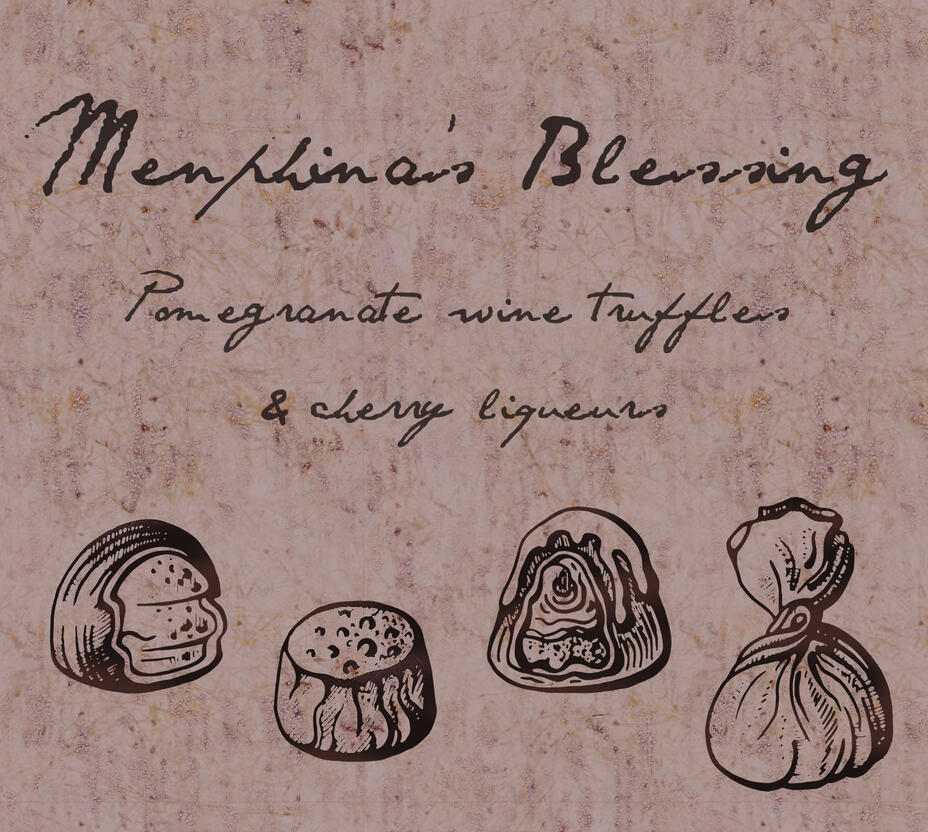 Menphina's Blessing
Pomegranate wine truffles
& cherry liqueurs